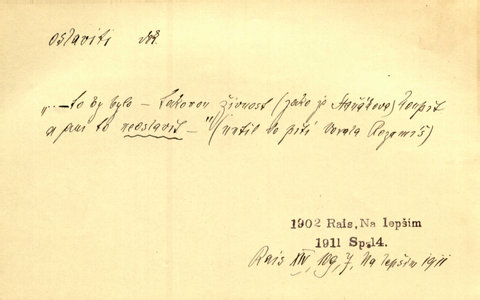 oslaviti dok.
„— to by bylo — takovou živnost (jako je Staňkova) koupit
a pak to neoslavit —" (nutil ke pití Vovala
1902 Rais, Na lepším
1911 Sp.14.
Rais XIV, 109, 7, Na lepším 1911